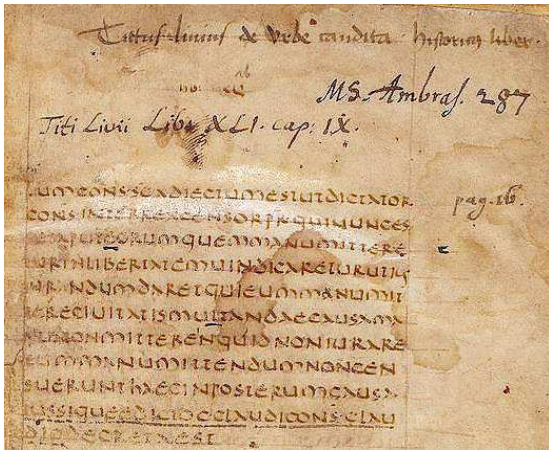 Tittus livius de Urbe condita historicus liber.
MS. Ambras. 287
Titi Livii Libr XLI. cap. IX.
UMCONSSCADIECTUMESTUTDICTATOR
pag. 16.
CONSINTERREXCENSORPRQUINUNCES
APUTEORUMQUEMMANUMITTERE
TURINLIBERTATEMUINDICARETURUTIUS
IURANDUMDARETQUIEUMMANUMIT
TERECIUITATISMUTANDAECAUSAMA
NUNONMITTERENQUIDNONIURARE
EUMMANUMITTENDUMNONCEN
SUERUNTHAECINPOSTERUMCAUSA
IUSSIQUEEDICTOCCLAUDICONSCLAU
DIODECRETAEST